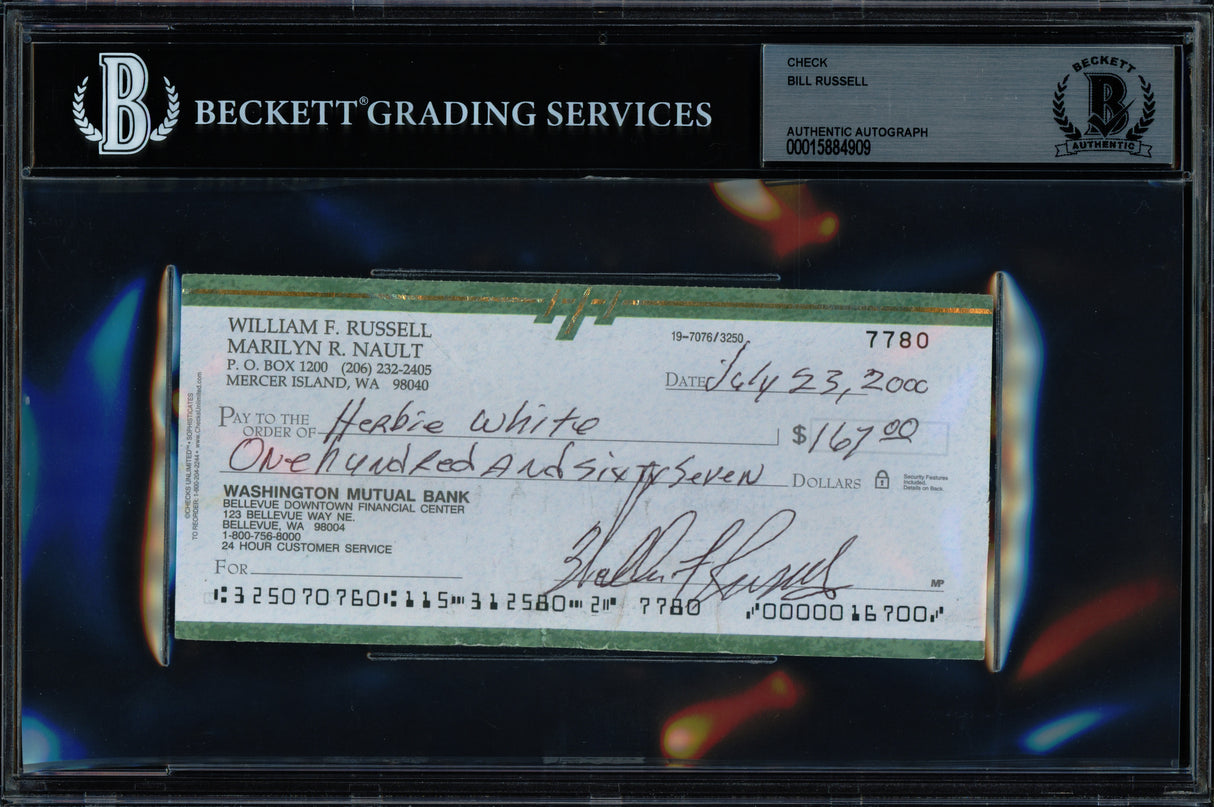 B
BECKETT® GRADING SERVICES
CHECK
BILL RUSSELL
AUTHENTIC AUTOGRAPH
00015884909
BECKETT
B
AUTHENTIC
WILLIAM F. RUSSELL
MARILYN R. NAULT
P. O. BOX 1200 (206) 232-2405
MERCER ISLAND, WA 98040
19-7076/3250
7780
DATE July 23, 2000
PAY TO THE
ORDER OF Herbie White
$ 167 00
One hundred And sixty Seven DOLLARS
Security Features
Included.
Details on Back.
WASHINGTON MUTUAL BANK
BELLEVUE DOWNTOWN FINANCIAL CENTER
123 BELLEVUE WAY NE.
BELLEVUE, WA 98004
1-800-756-8000
24 HOUR CUSTOMER SERVICE
FOR
William F Russell
MP
⑆325070760⑆115⑉312580⑉2⑈ 7780 ⑇0000016700⑇
©CHECKS UNLIMITED™ • SOPHISTICATES
TO REORDER: 1-800-204-2244 • www.ChecksUnlimited.com